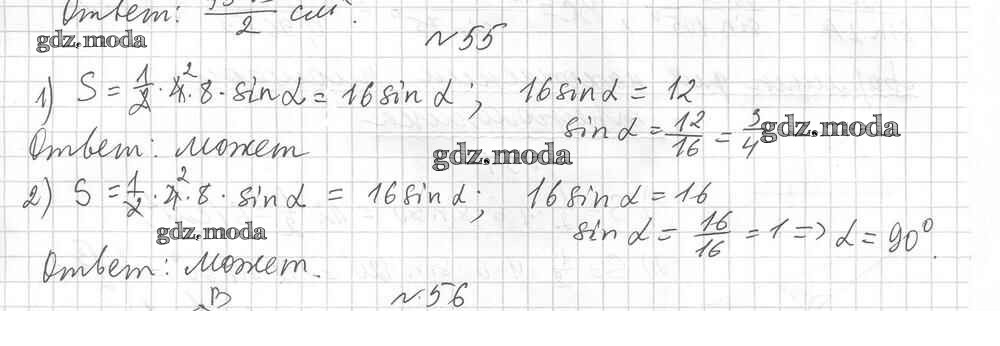 Ответ: 2 см².
gdz.moda
№55
1) S = 1/2 · 4 2 · 8 · sin α = 16 sin α ; 16 sin α = 12
sin α = 12/16 = 3/4
gdz.moda
Ответ: может
gdz.moda
2) S = 1/2 · 4 2 · 8 · sin α = 16 sin α ; 16 sin α = 16
sin α = 16/16 = 1 => α = 90°.
gdz.moda
Ответ: может.
B
№56